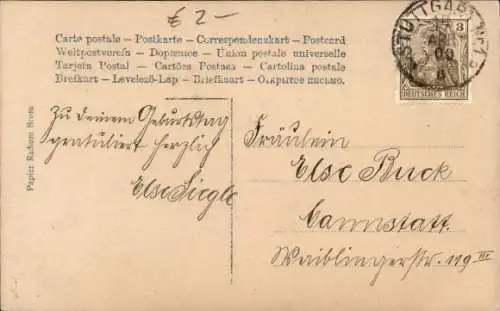 € 2-
Carte postale – Postkarte – Correspondenzkart – Postcard
Weltpostverein – Dopisnice – Union postale universelle
Tarjeta Postal – Cartões Postaes – Cartolina postale
Brefkart – Levelező-Lap – Briefkaart – ОТКРЫТОЕ ПИСЬМО.
STUTTGART
3
DEUTSCHES REICH
Papier Radium Brom
Zu deinem Geburtstag
gratuliert herzlich
Else Siegle
Fräulein
Else Buck
Cannstatt.
Waiblingerstr. 119 III